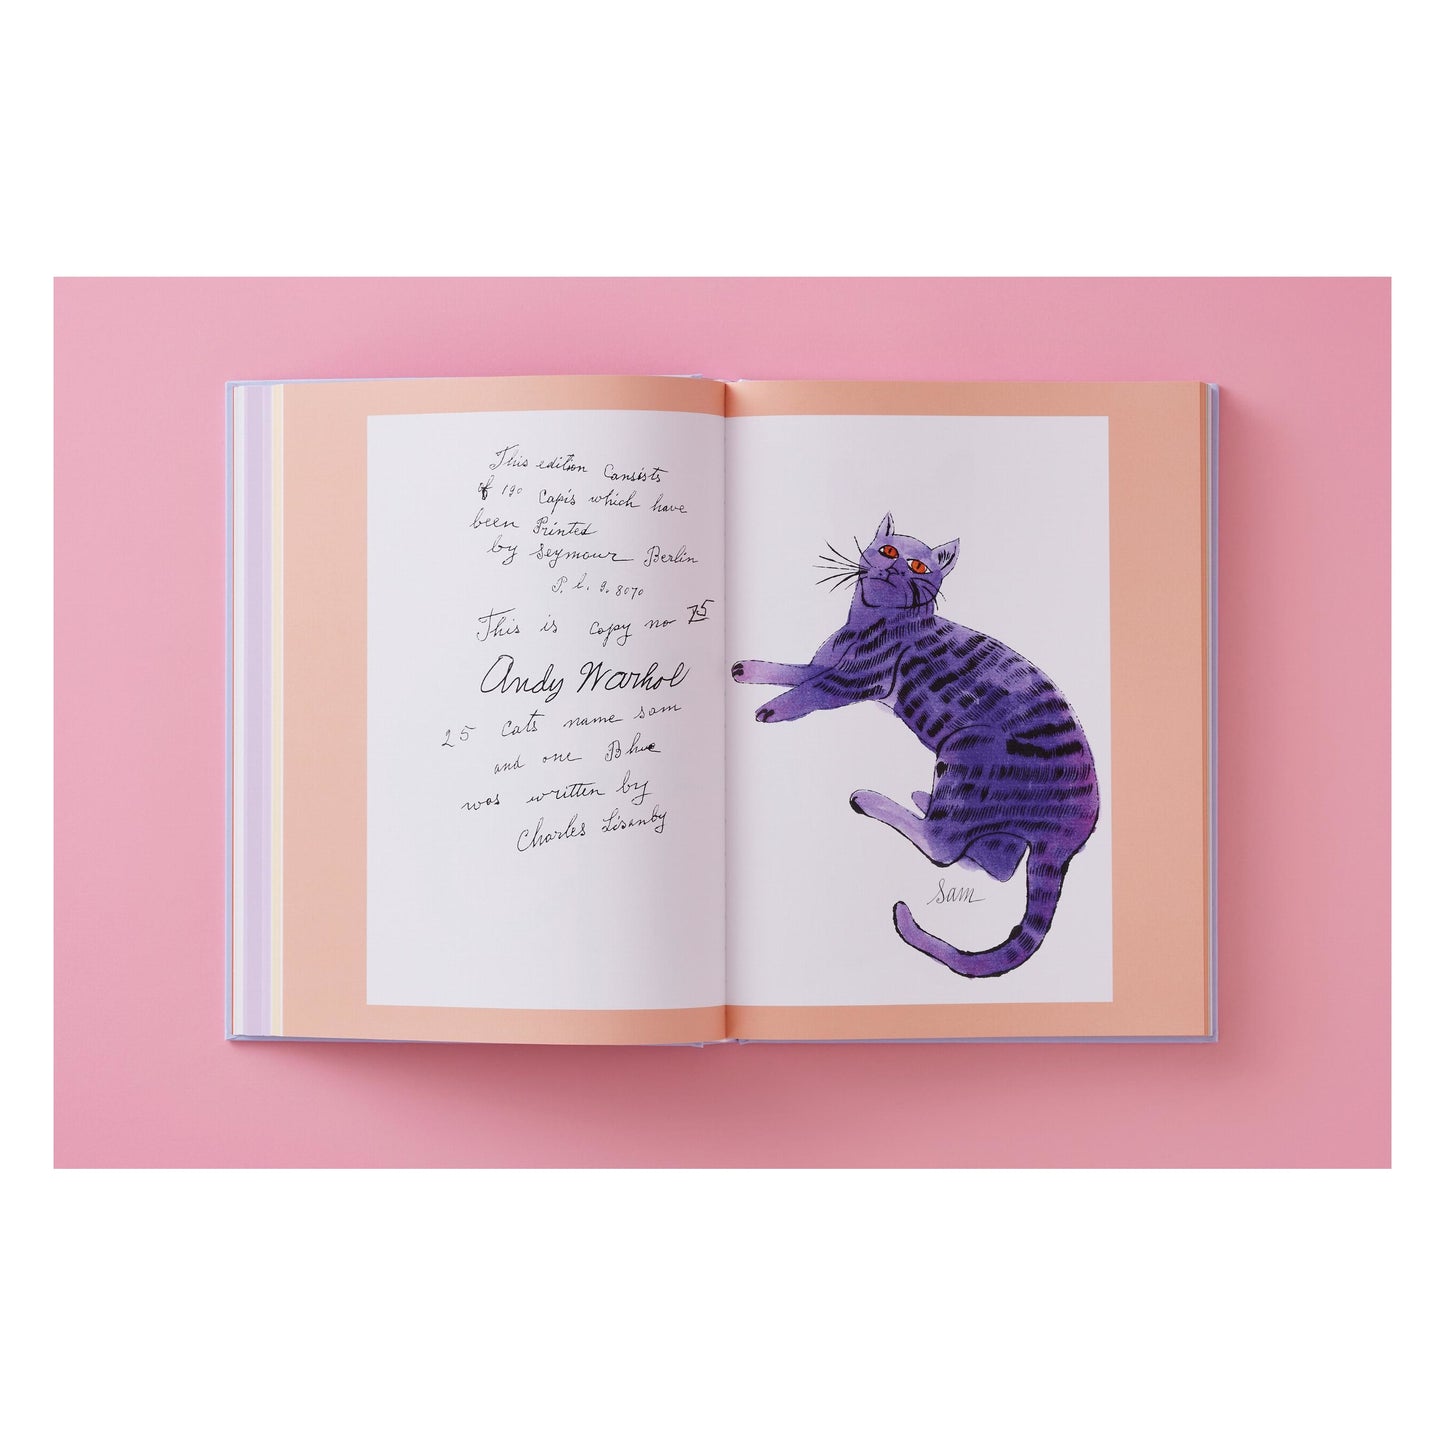 This edition Consists
of 190 Capis which have
been Printed
by Seymour Berlin
P. l. 9. 8070
This is copy no 75
Andy Warhol
25 Cats name sam
and one Blue
was written by
Charles Lisanby
Sam